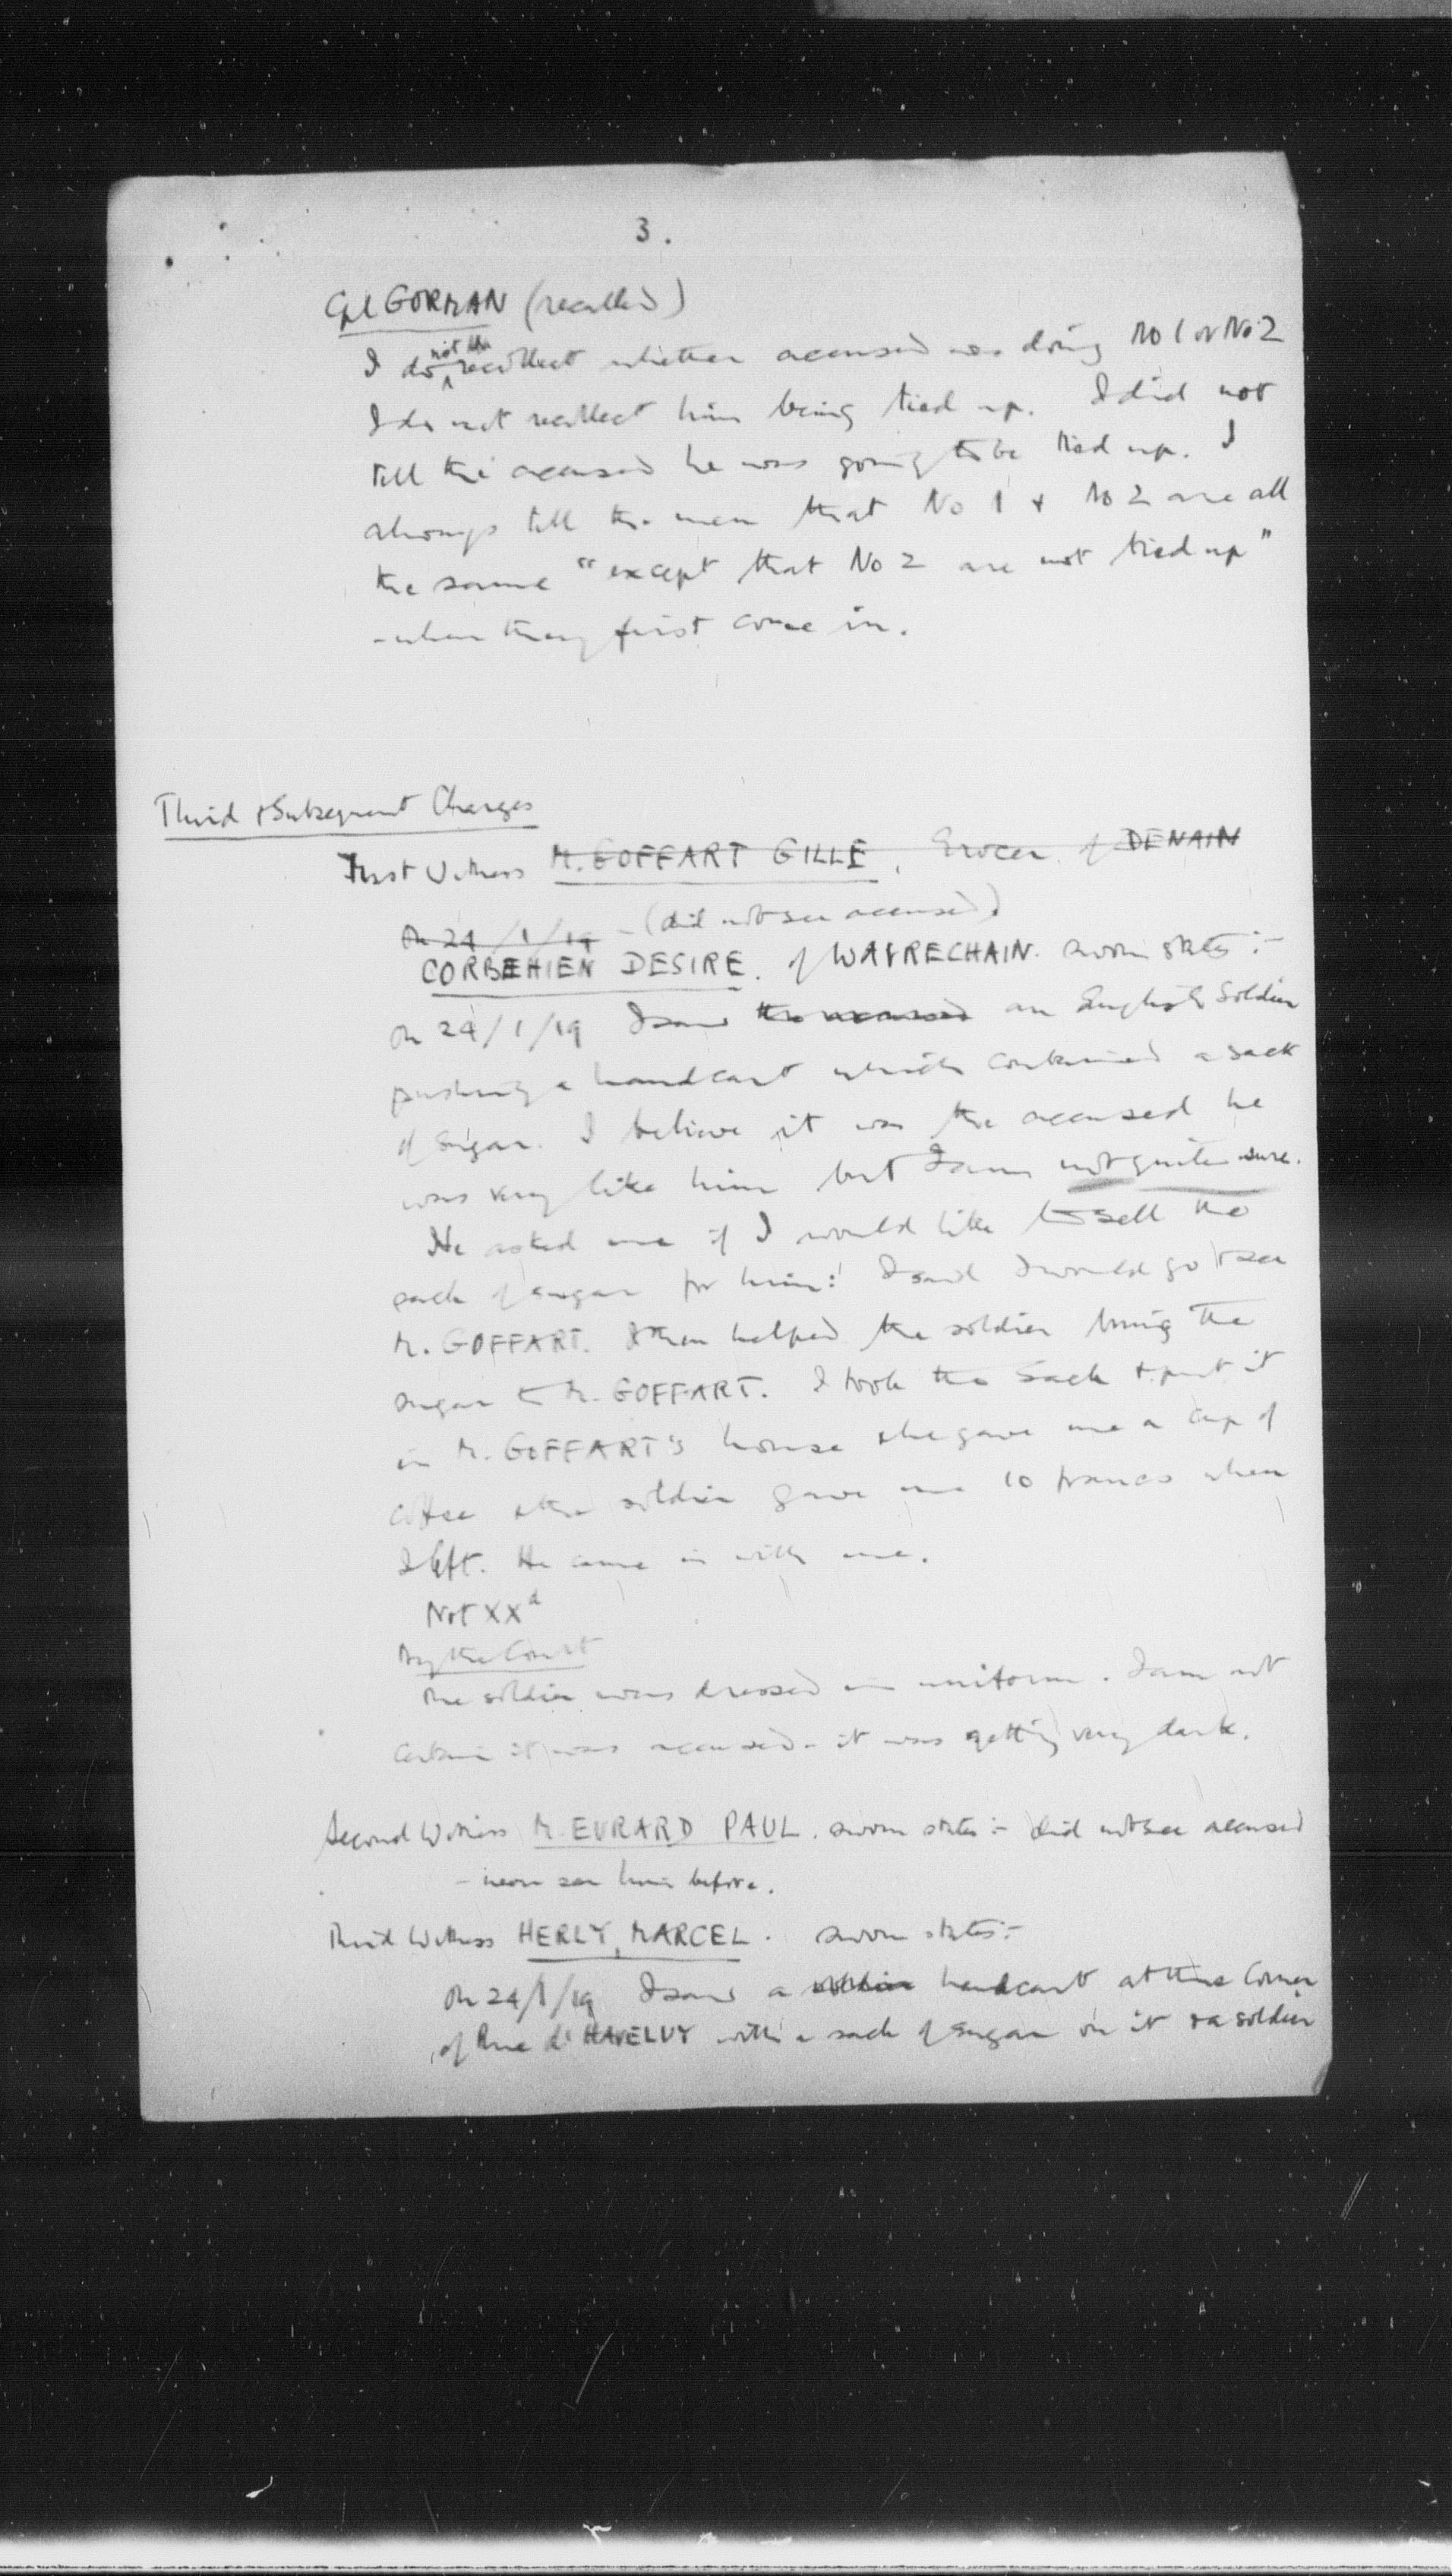 3.
Cpl GORMAN (recalled)
I do not recollect whether accused was doing No 1 or No 2
I do not recollect him being tied up. I did not
tell the accused he was going to be tied up. I
always tell the men that No 1 & No 2 are all
the same "except that No 2 are not tied up"
- when they first come in.
Third & Subsequent Charges
First Witness M. GOFFART GILLE, Grocer of DENAIN
On 24/1/19 - (did not see accused)
CORBEHIEN DESIRE. of WAVRECHAIN. sworn states :-
On 24/1/19 I saw the accused an English Soldier
pushing a handcart which contained a sack
of sugar. I believe it was the accused he
was very like him but I am not quite sure.
He asked me if I would like to sell the
sack of sugar for him: I said I would go & see
M. GOFFART. I then helped the soldier bring the
sugar to M. GOFFART. I took the sack & put it
in M. GOFFART's house & he gave me a cup of
coffee & the soldier gave me 10 francs when
I left. He came in with me.
Not XXd
By the Court
The soldier was dressed in uniform. I am not
certain it was accused - it was getting very dark.
Second Witness M. EVRARD PAUL. sworn states :- did not see accused
- never saw him before.
Third Witness HERLY, MARCEL. sworn states :-
On 24/1/19 I saw a soldier handcart at the Corner
of Rue d' HAVELUY with a sack of sugar on it & a soldier